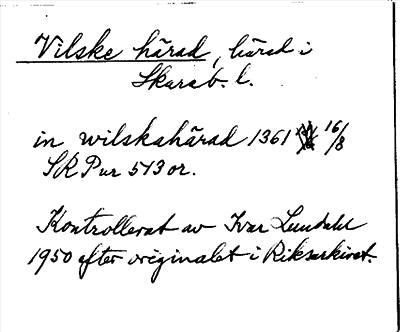 Vilske härad, härad i
Skarab. l.
in wilskahärad 1361 16/8
SRPur 513 or.
Kontrollerat av Ivar Lundahl
1950 efter originalet i Riksarkivet.